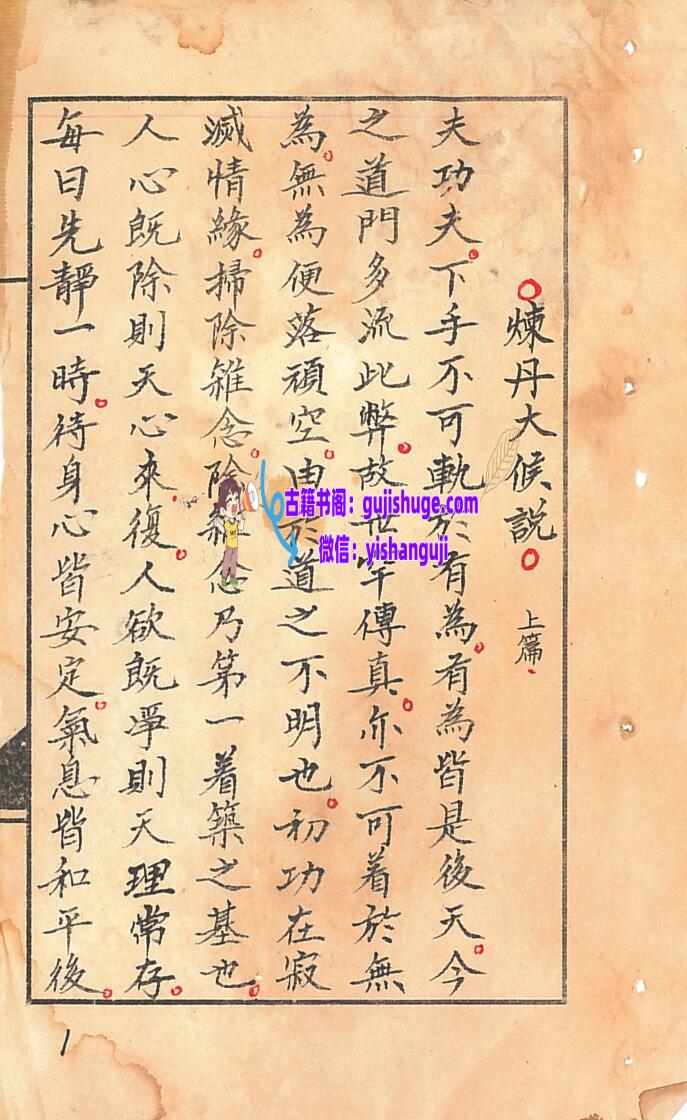 煉丹大候説 上篇
夫功夫下手不可執於有為有為皆是後天今
之道門多流此弊故世罕傳真亦不可着於無
為無為便落頑空由於道之不明也初功在寂
滅情緣掃除雜念除雜念乃第一着築之基也
人心既除則天心來復人欲既淨則天理常存
每日先靜一時待身心皆安定氣息皆和平後
古籍书阁：gujishuge.com
微信：yishanguji
1